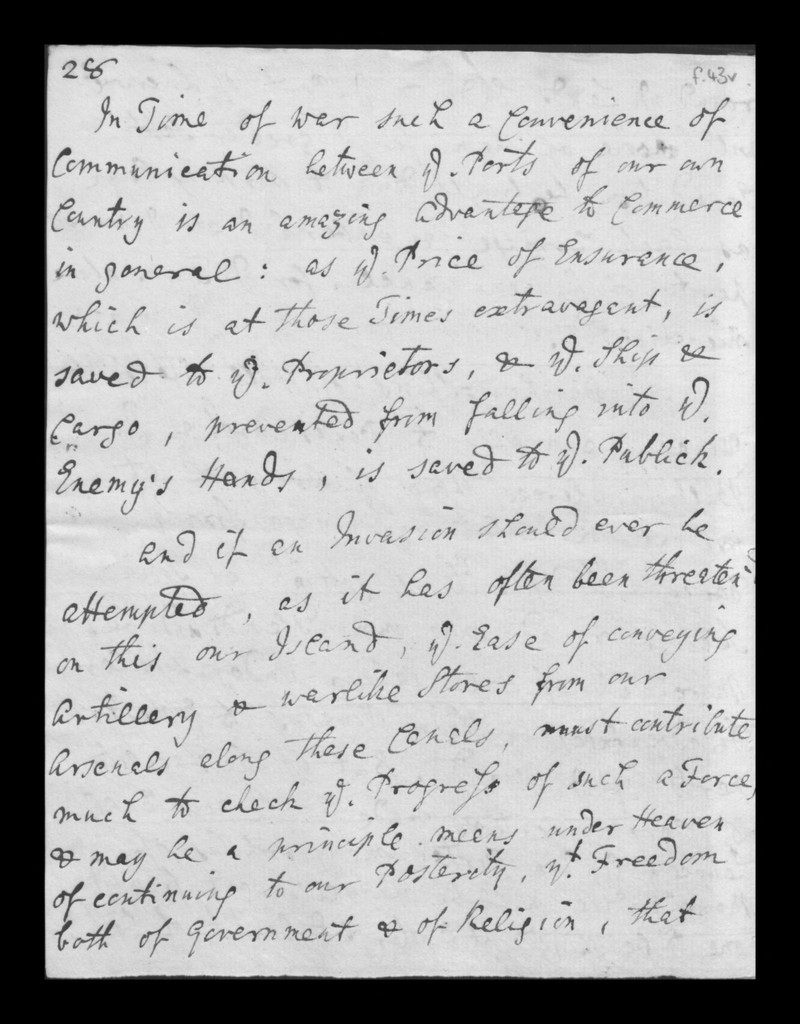 28
f.43v
In Time of war such a Convenience of
Communication between ye. Ports of our own
Country is an amazing advantege to Commerce
in general: as ye. Price of Ensurance,
which is at those Times extravagent, is
saved to ye. Proprietors, & ye. Ship &
Cargo, prevented from falling into ye.
Enemy's Hands, is saved to ye. Publick.
and if an Invasion should ever be
attempted, as it has often been threaten'd
on this our Island, ye. Ease of conveying
Artillery & warlike Stores from our
Arsenals along these Canals, must contribute
much to check ye. Progress of such a Force,
& may be a principle means under Heaven
of continuing to our Posterity, yt. Freedom
both of Government & of Religion, that